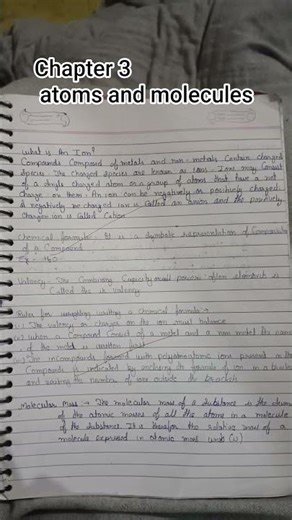 Chapter 3
atoms and molecules
What is An Ion?
Compounds Composed of metals and non-metals Contain charged
Species. The charged species are known as ions. Ions may Consist
of a single charged atom or a group of atoms that have a net
charge on them. An ion can be negatively or positively charged.
A negatively charged ion is Called an anion and the positively
charged ion is Called Cation.
Chemical formula - It is a Symbolic representation of Composition
of a Compound.
Eg - H2O
Valency - The Combining Capacity of an element is
Called its valency
Rules for writing a chemical formula →
(i) The valency or charges on the ion must balance
(ii) When a Compound Consist of a metal and a non metal the name
of the metal is written first
(iii) In compounds formed with polyatomic ions present in the
Compound is indicated by enclosing the formula of ion in a bracket
and writing the number of ions outside the bracket
Molecular Mass → The molecular mass of a substance is the sum
of the atomic masses of all the atoms in a molecule
of the substance. It is therefore the relative mass of a
molecule expressed in atomic mass units (u)